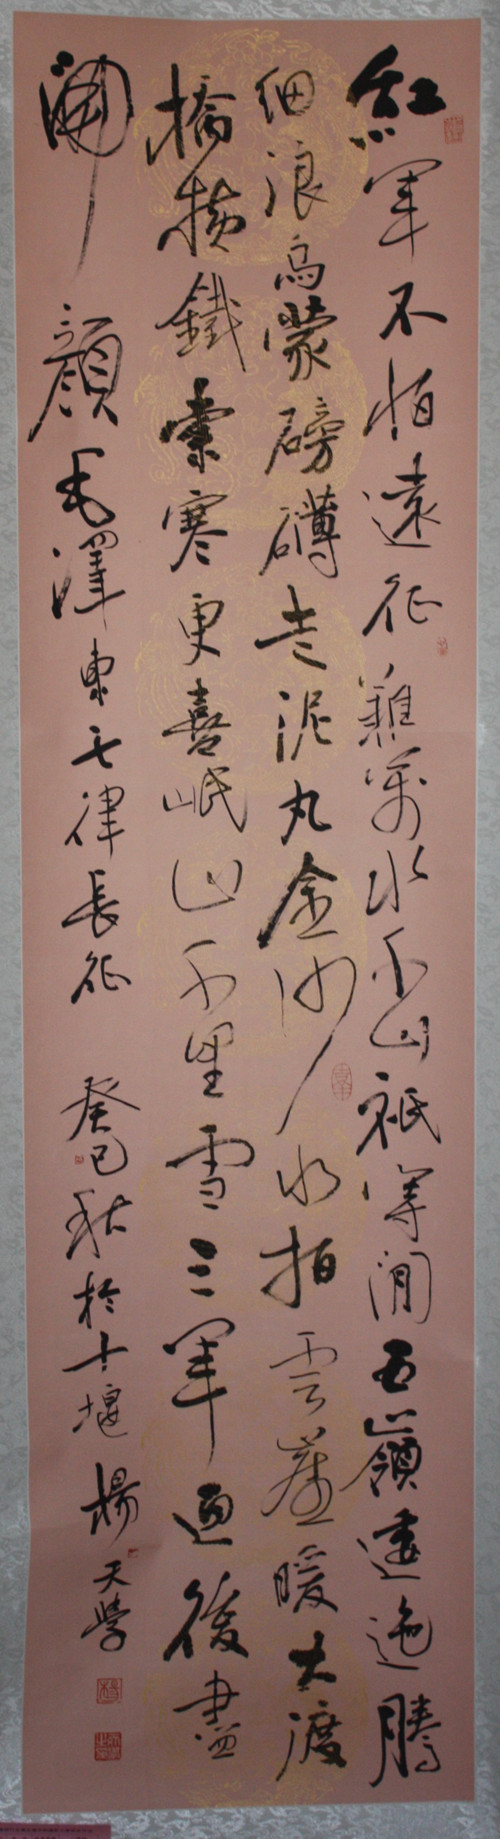 紅軍不怕遠征難萬水千山祇等閒五嶺逶迤騰
細浪烏蒙磅礴走泥丸金沙水拍雲崖暖大渡
橋橫鐵索寒更喜岷山千里雪三軍過後盡
開顏毛澤東七律長征 癸巳秋於十堰楊天學